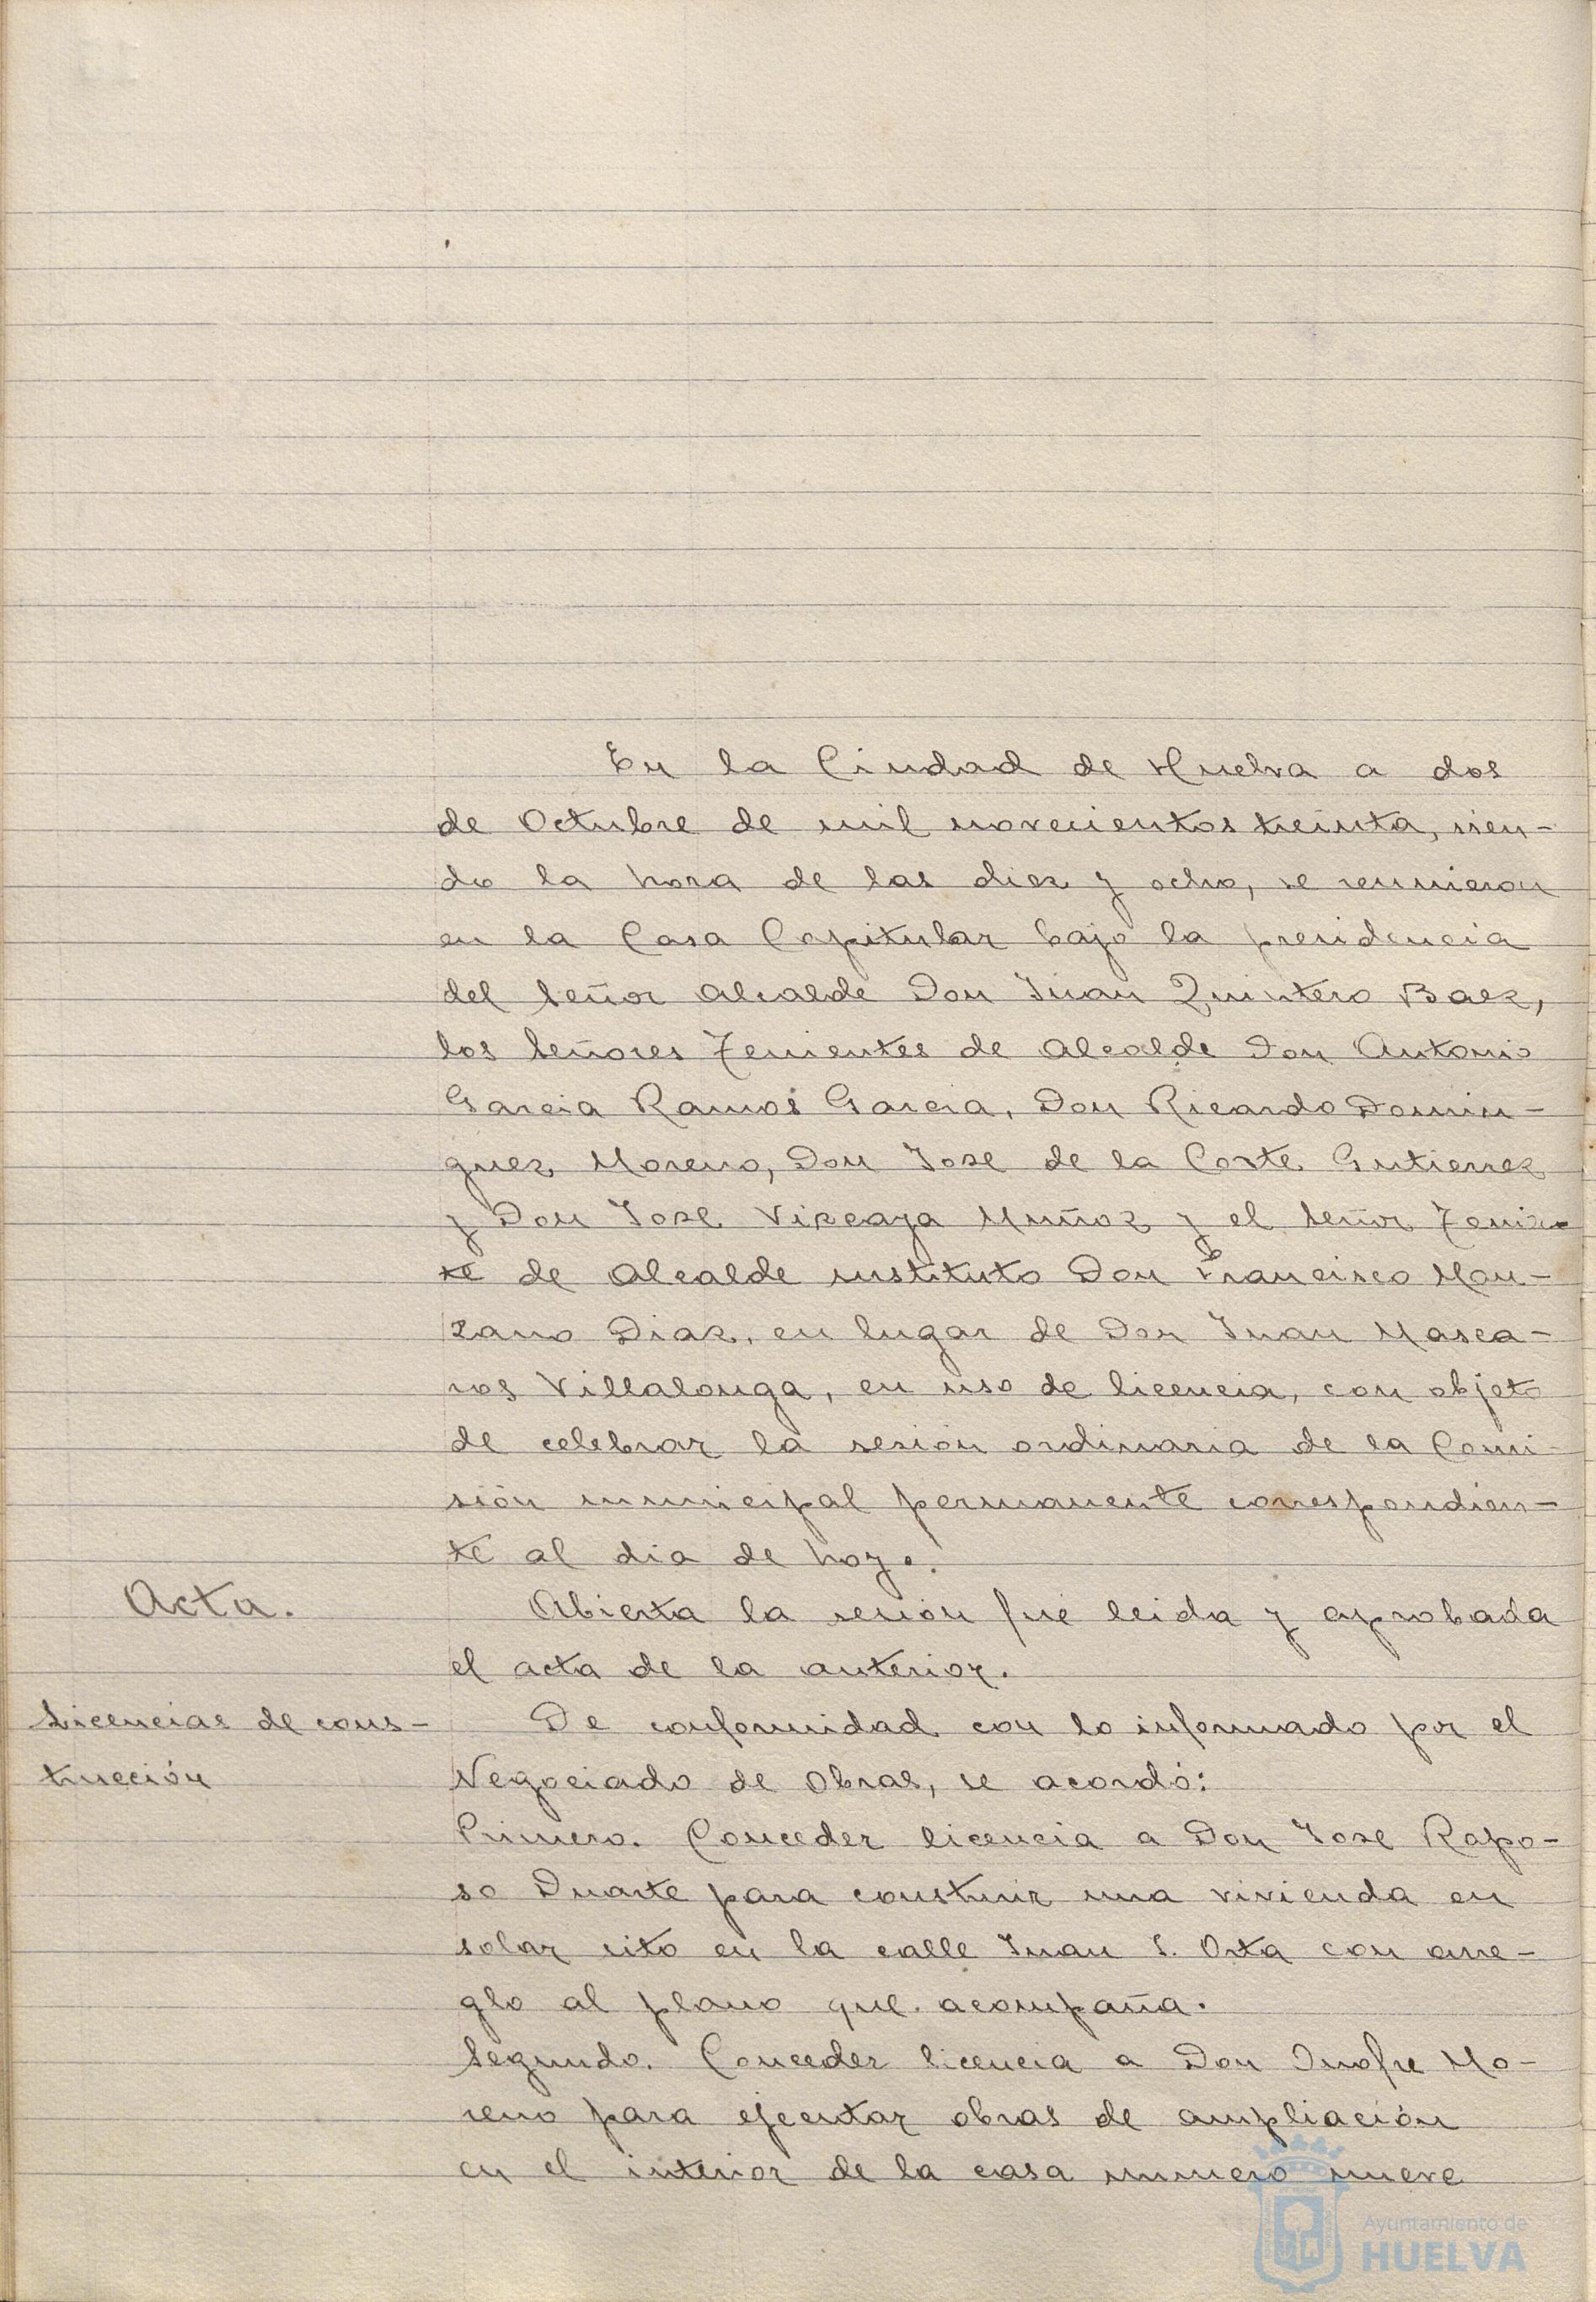 En la Ciudad de Huelva a dos
de Octubre de mil novecientos treinta, sien-
do la hora de las diez y ocho, se reunieron
en la Casa Capitular bajo la presidencia
del Señor Alcalde Don Juan Quintero Baez,
los Señores Tenientes de Alcalde Don Antonio
Garcia Ramos Garcia, Don Ricardo Domin-
guez Moreno, Don Jose de la Corte Gutierrez
y Don Jose Vizcaya Muñoz y el Señor Tenien-
te de Alcalde sustituto Don Francisco Mon-
zano Diaz, en lugar de Don Juan Masca-
ros Villalonga, en uso de licencia, con objeto
de celebrar la sesión ordinaria de la Comi-
sión municipal permanente correspondien-
te al dia de hoy.
Acta.
Abierta la sesión fué leida y aprobada
el acta de la anterior.
Licencias de cons-
trucción
De conformidad con lo informado por el
Negociado de Obras, se acordó:
Primero. Conceder licencia a Don Jose Rapo-
so Duarte para construir una vivienda en
solar sito en la calle Juan S. Orta con arre-
glo al plano que acompaña.
Segundo. Conceder licencia a Don Onofre Mo-
reno para ejecutar obras de ampliación
en el interior de la casa numero nueve
Ayuntamiento de
HUELVA